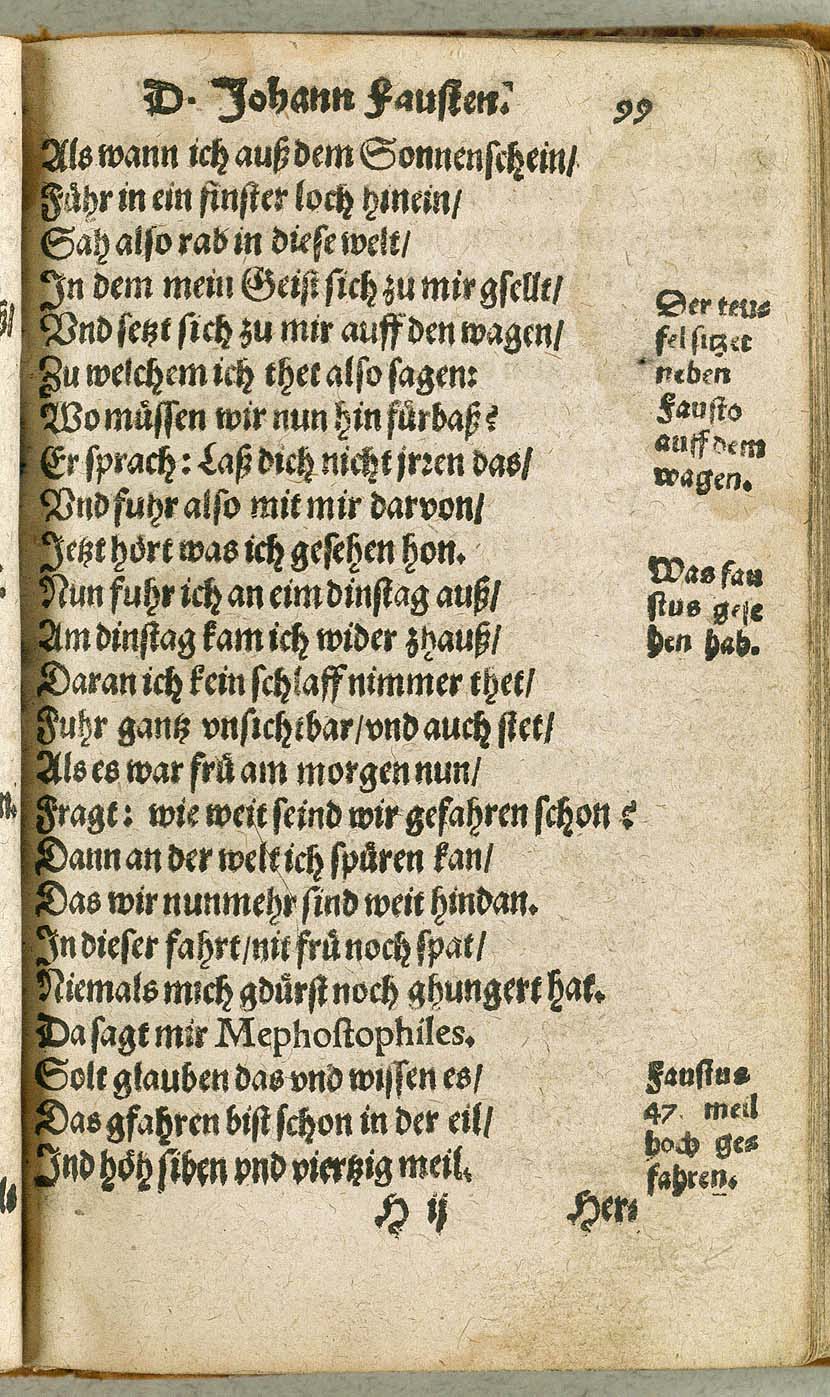 D. Johann Fausten.
99
Als wann ich auß dem Sonnenschein/
Führ in ein finster loch hinein/
Sah also rab in diese welt/
In dem mein Geist sich zu mir gsellt/
Vnd setzt sich zu mir auff den wagen/
Zu welchem ich thet also sagen:
Wo müssen wir nun hin fürbaß?
Er sprach: Laß dich nicht jrren das/
Vnd fuhr also mit mir darvon/
Jetzt hört was ich gesehen hon.
Nun fuhr ich an eim dinstag auß/
Am dinstag kam ich wider zhauß/
Daran ich kein schlaff nimmer thet/
Fuhr gantz vnsichtbar/vnd auch stet/
Als es war frü am morgen nun/
Fragt: wie weit seind wir gefahren schon?
Dann an der welt ich spüren kan/
Das wir nunmehr sind weit hindan.
In dieser fahrt/nit frü noch spat/
Niemals mich gdürst noch ghungert hat.
Da sagt mir Mephostophiles.
Solt glauben das vnd wissen es/
Das gfahren bist schon in der eil/
Ind höh siben vnd viertzig meil.
H ij
Her⸗
Der teu⸗
fel sitzet
neben
Fausto
auff dem
wagen.
Was fau
stus gese
hen hab.
Faustus
47. meil
hoch ge⸗
fahren.